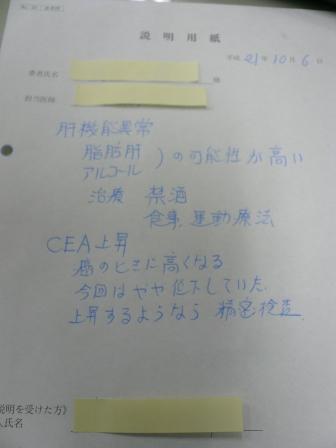 説明用紙
平成 21年 10月 6日
患者氏名
様
担当医師
肝機能異常
脂肪肝
アルコール
)の可能性が高い
治療 禁酒
食事、運動療法
CEA上昇
癌のときに高くなる
今回はやや低下していた.
上昇するようなら 精密検査
説明を受けた方》
人氏名